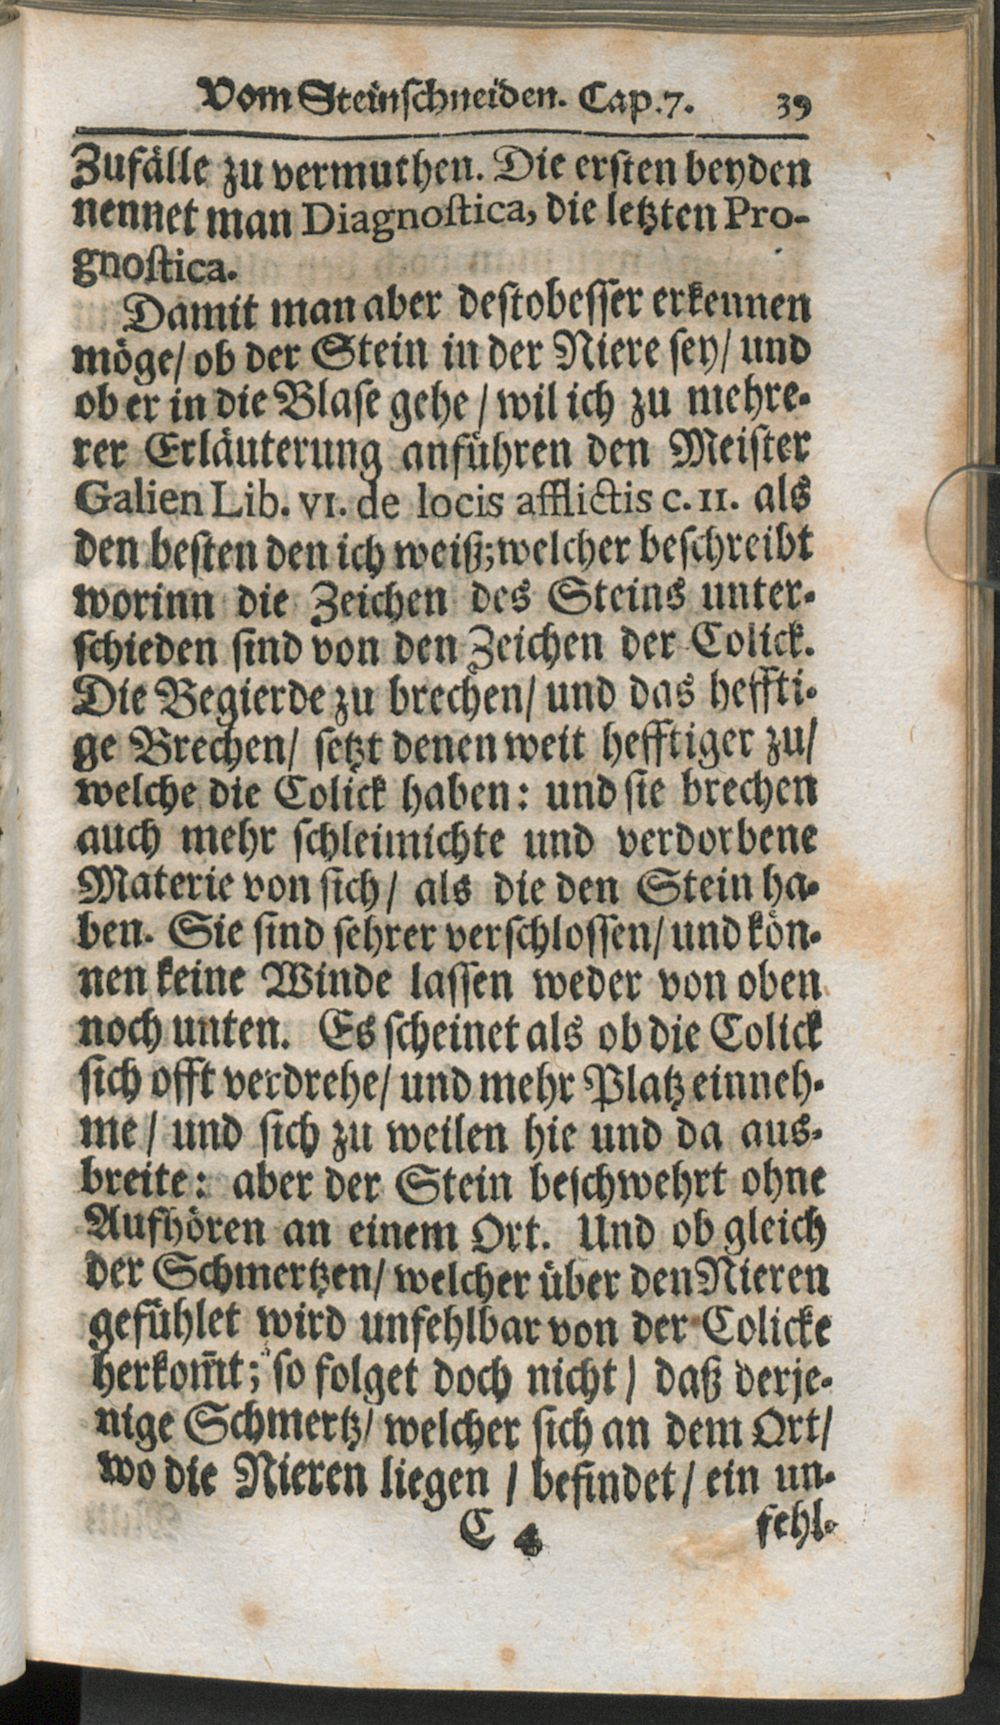 Vom Steinschneiden. Cap. 7. 39
Zufälle zu vermuthen. Die ersten beyden
nennet man Diagnostica, die letzten Pro-
gnostica.
Damit man aber destobesser erkennen
möge/ ob der Stein in der Niere sey/ und
ob er in die Blase gehe / wil ich zu mehre-
rer Erläuterung anführen den Meister
Galien Lib. VI. de locis afflictis c. 11. als
den besten den ich weiß; welcher beschreibt
worinn die Zeichen des Steins unter-
schieden sind von den Zeichen der Colick.
Die Begierde zu brechen/ und das heffti-
ge Brechen/ setzt denen weit hefftiger zu/
welche die Colick haben: und sie brechen
auch mehr schleimichte und verdorbene
Materie von sich/ als die den Stein ha-
ben. Sie sind sehrer verschlossen/ und kön-
nen keine Winde lassen weder von oben
noch unten. Es scheinet als ob die Colick
sich offt verdrehe/ und mehr Platz einneh-
me / und sich zu weilen hie und da aus-
breite: aber der Stein beschwehrt ohne
Aufhören an einem Ort. Und ob gleich
der Schmertzen/ welcher über den Nieren
gefühlet wird unfehlbar von der Colicke
herkom̃t; so folget doch nicht / daß derje-
nige Schmertz/ welcher sich an dem Ort/
wo die Nieren liegen / befindet/ ein un-
C 4 fehl-